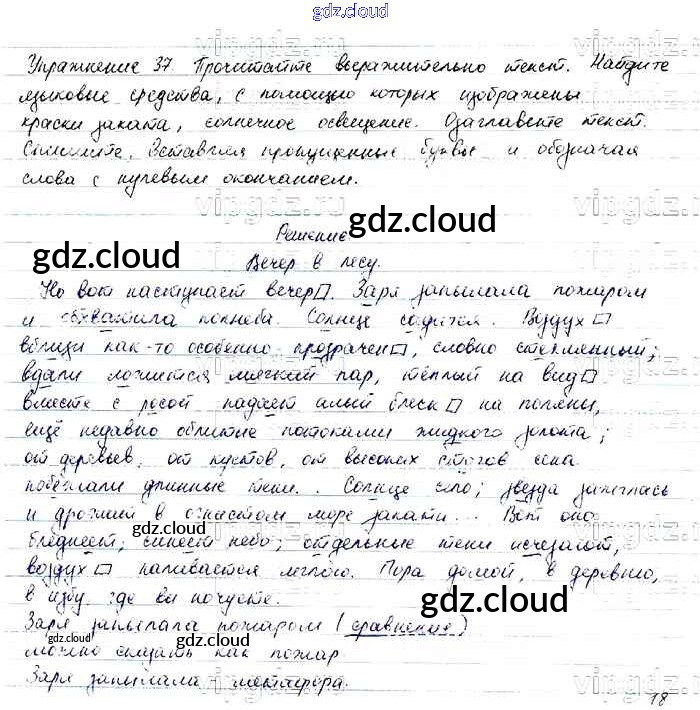 gdz.cloud
Упражнение 37. Прочитайте выразительно текст. Найдите
языковые средства, с помощью которых изображены
краски заката, солнечное освещение. Озаглавьте текст.
Спишите, вставляя пропущенные буквы и обозначая
слова с нулевым окончанием.
Решение
gdz.cloud
gdz.cloud
Вечер в лесу.
Но вот наступает вечер□. Заря запылала пожаром
и обхватила полнеба. Солнце садится. Воздух□
вблизи как-то особенно прозрачен□, словно стеклянный;
вдали ложится мягкий пар, тёплый на вид□
вместе с росой падает алый блеск□ на поляны,
ещё недавно облитые потоками жидкого золота;
от деревьев, от кустов, от высоких стогов сена
побежали длинные тени... Солнце село; звезда зажглась
и дрожит в огнистом море заката... Вот оно
бледнеет; синеет небо; отдельные тени исчезают,
gdz.cloud
gdz.cloud
воздух□ наливается мглою. Пора домой, в деревню,
в избу, где вы ночуете.
gdz.cloud
Заря запылала пожаром (сравнение)
gdz.cloud
gdz.cloud
можно сказать как пожар.
Заря запылала – метафора.
18